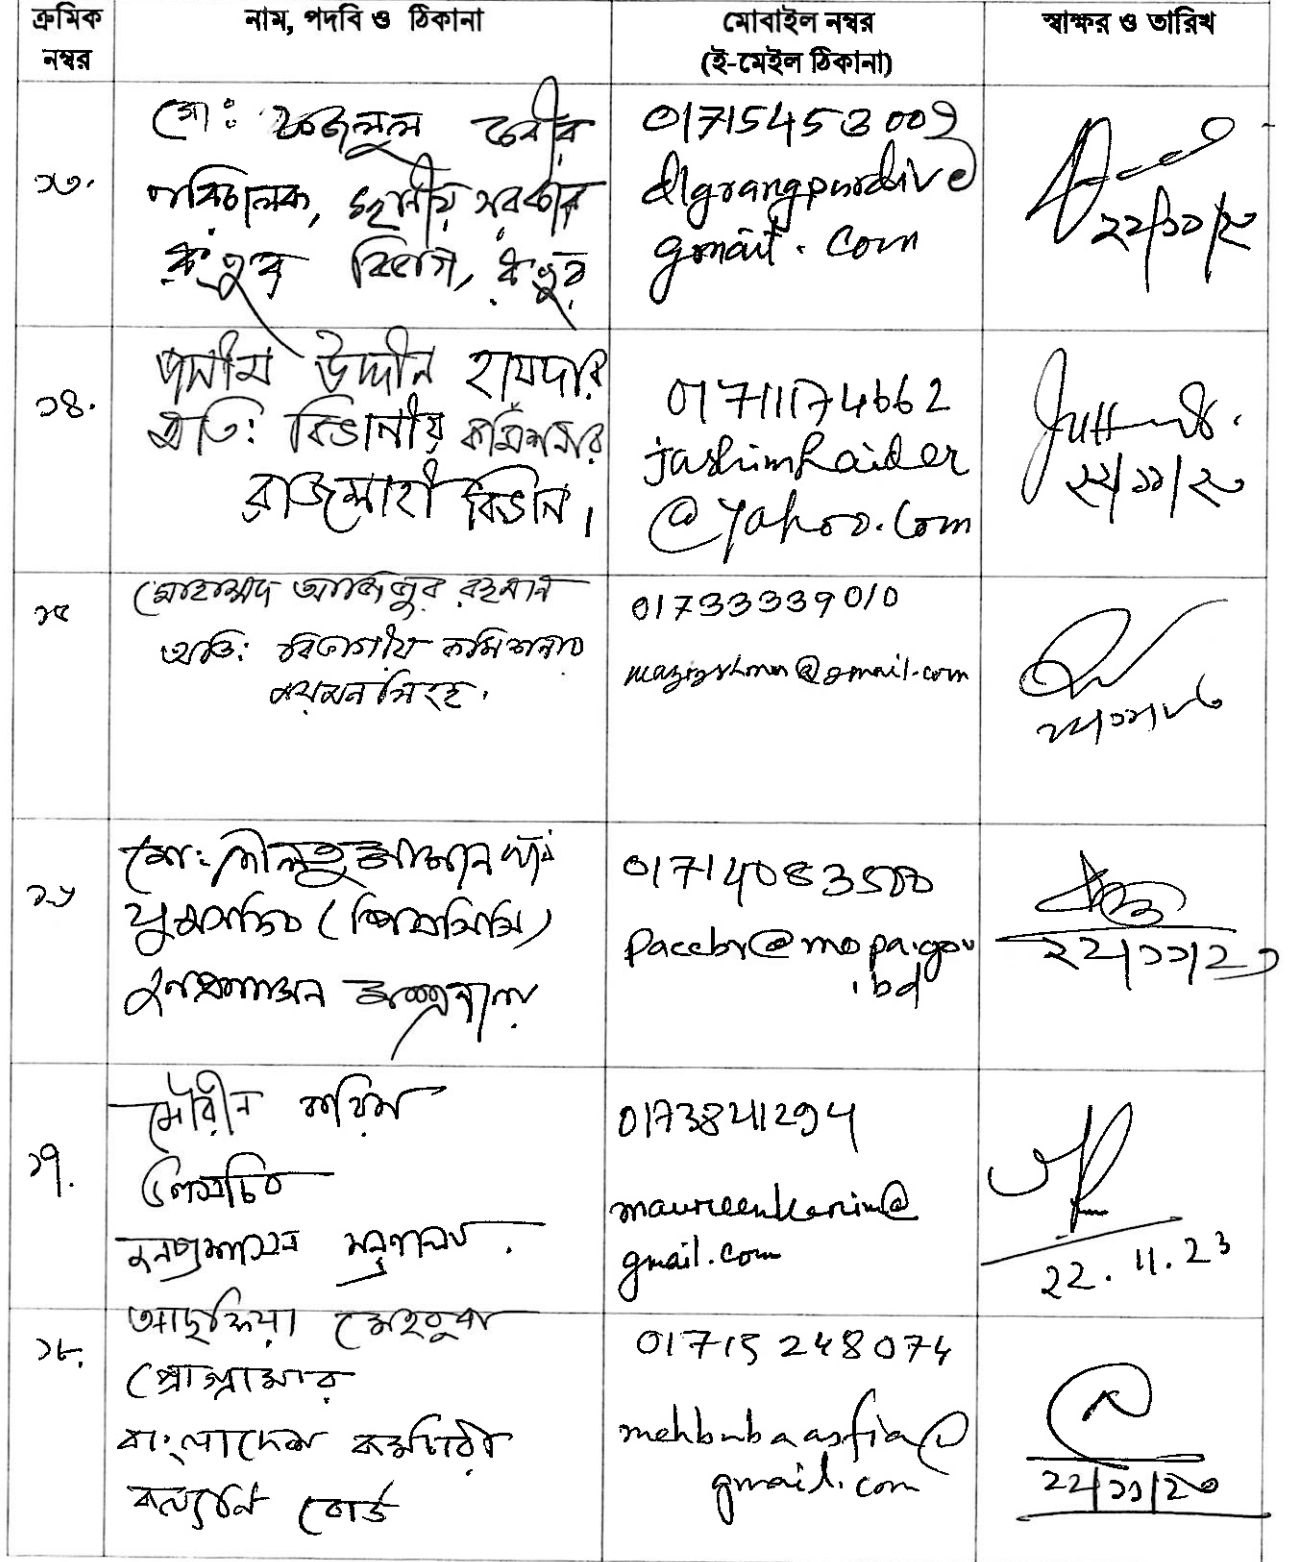 ক্রমিক নম্বর
নাম, পদবি ও ঠিকানা
মোবাইল নম্বর
(ই-মেইল ঠিকানা)
স্বাক্ষর ও তারিখ
১৩.
মো: ফজলুল কবীর
পরিচালক, স্থানীয় সরকার
রংপুর বিভাগ, রংপুর
01715453009
dlgrangpurdiv@
gmail.com
২২/১১/২৩
১৪.
জসীম উদ্দীন হায়দার
অতি: বিভাগীয় কমিশনার
রাজশাহী বিভাগ।
01711174662
jashimhaider
@yahoo.com
২২/১১/২৩
১৫
মোহাম্মদ আজিজুর রহমান
অতি: বিভাগীয় কমিশনার
ময়মনসিংহ.
01733339010
@gmail.com
২২/১১/২৩
১৬
মো:
যুগ্মসচিব (পিএসিসি)
জনপ্রশাসন মন্ত্রণালয়
01714083500
paccbr@mopa.gov
.bd
২২/১১/২৩
১৭.
মৌরীন করিম
উপসচিব
জনপ্রশাসন মন্ত্রণালয়.
01738211294
maureenkarim@
gmail.com
22.11.23
১৮.
আছফিয়া মেহবুবা
প্রোগ্রামার
বাংলাদেশ কর্মচারী
কল্যাণ বোর্ড
01715248074
mehbubaasfia@
gmail.com
২২/১১/২৩